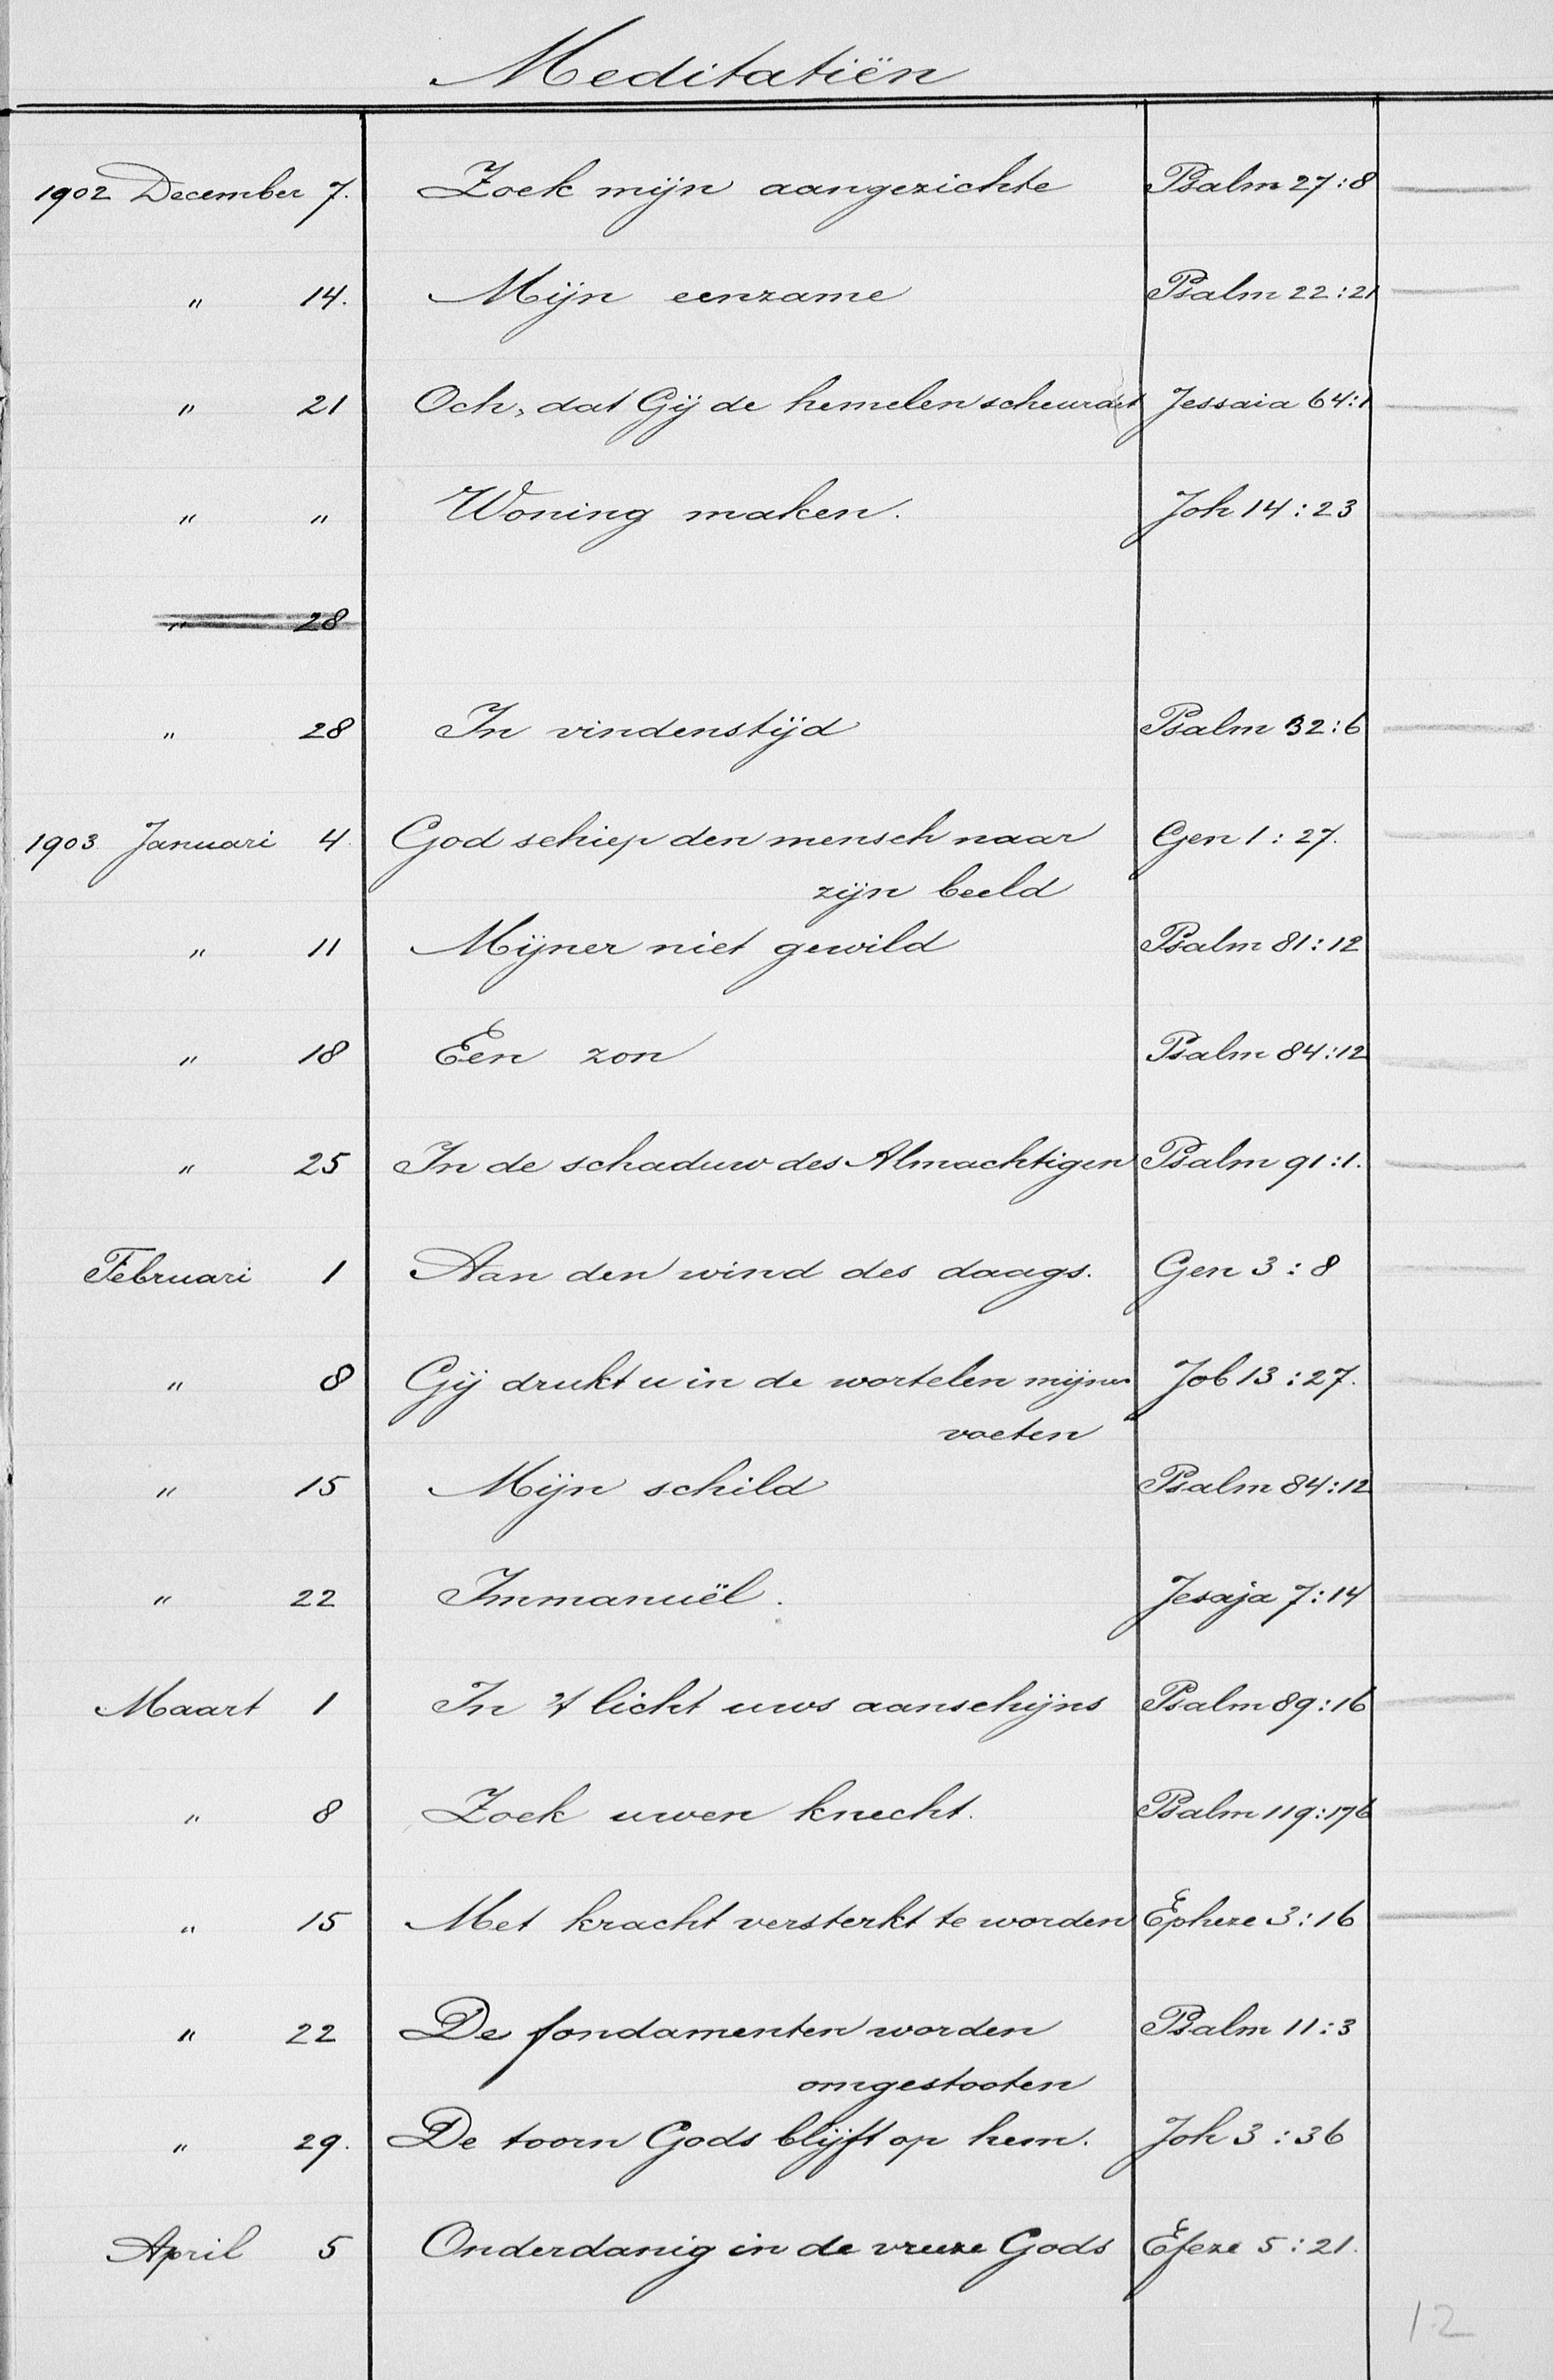 Meditatiën
1902 December 7. Zoek mijn aangezichte Psalm 27:8
" 14. Mijn eenzame Psalm 22:21
" 21 Och, dat Gij de hemelen scheurdet Jessaia 64:1
" " Woning maken. Joh 14:23
" 28
" 28 In vindenstijd Psalm 32:6
1903 Januari 4 God schiep den mensch naar Gen 1:27.
zijn beeld
" 11 Mijner niet gewild Psalm 81:12
" 18 Een zon Psalm 84:12
" 25 In de schaduw des Almachtigen Psalm 91:1.
Februari 1 Aan den wind des daags. Gen 3:8
" 8 Gij drukt u in de wortelen mijner Job 13:27.
voeten
" 15 Mijn schild Psalm 84:12
" 22 Immanuël. Jesaja 7:14
Maart 1 In 't licht uws aanschijns Psalm 89:16
" 8 Zoek uwen knecht. Psalm 119:176
" 15 Met kracht versterkt te worden Epheze 3:16
" 22 De fondamenten worden Psalm 11:3
omgestooten
" 29. De toorn Gods blijft op hem. Joh 3:36
April 5 Onderdanig in de vreeze Gods Efeze 5:21.
12